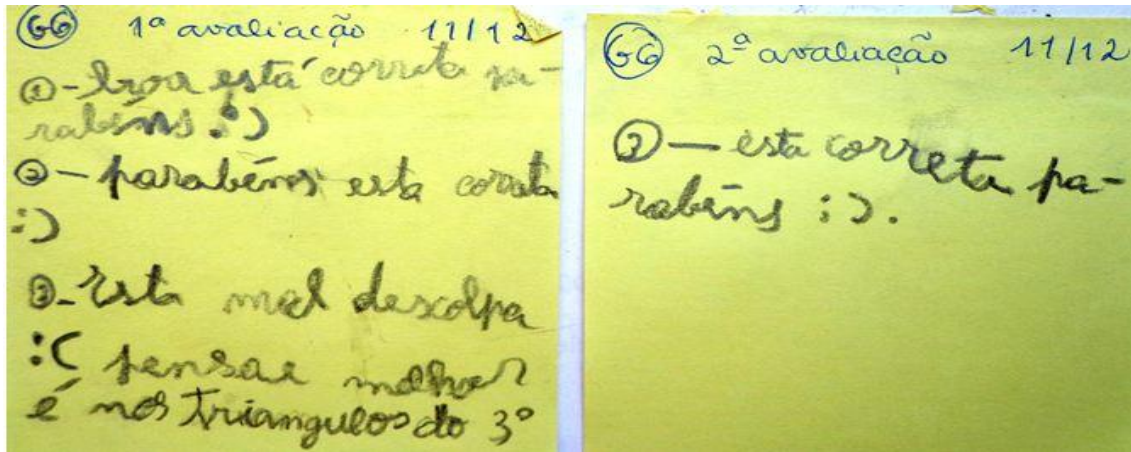 G6 1ª avaliação 11/12
①-boa está correta pa-
rabéns :)
②- parabéns esta correta
:)
③-Esta mal descolpa
:( pensar melhor
é nos triangulos do 3º
G6 2ª avaliação 11/12
③- esta correta pa-
rabéns :).